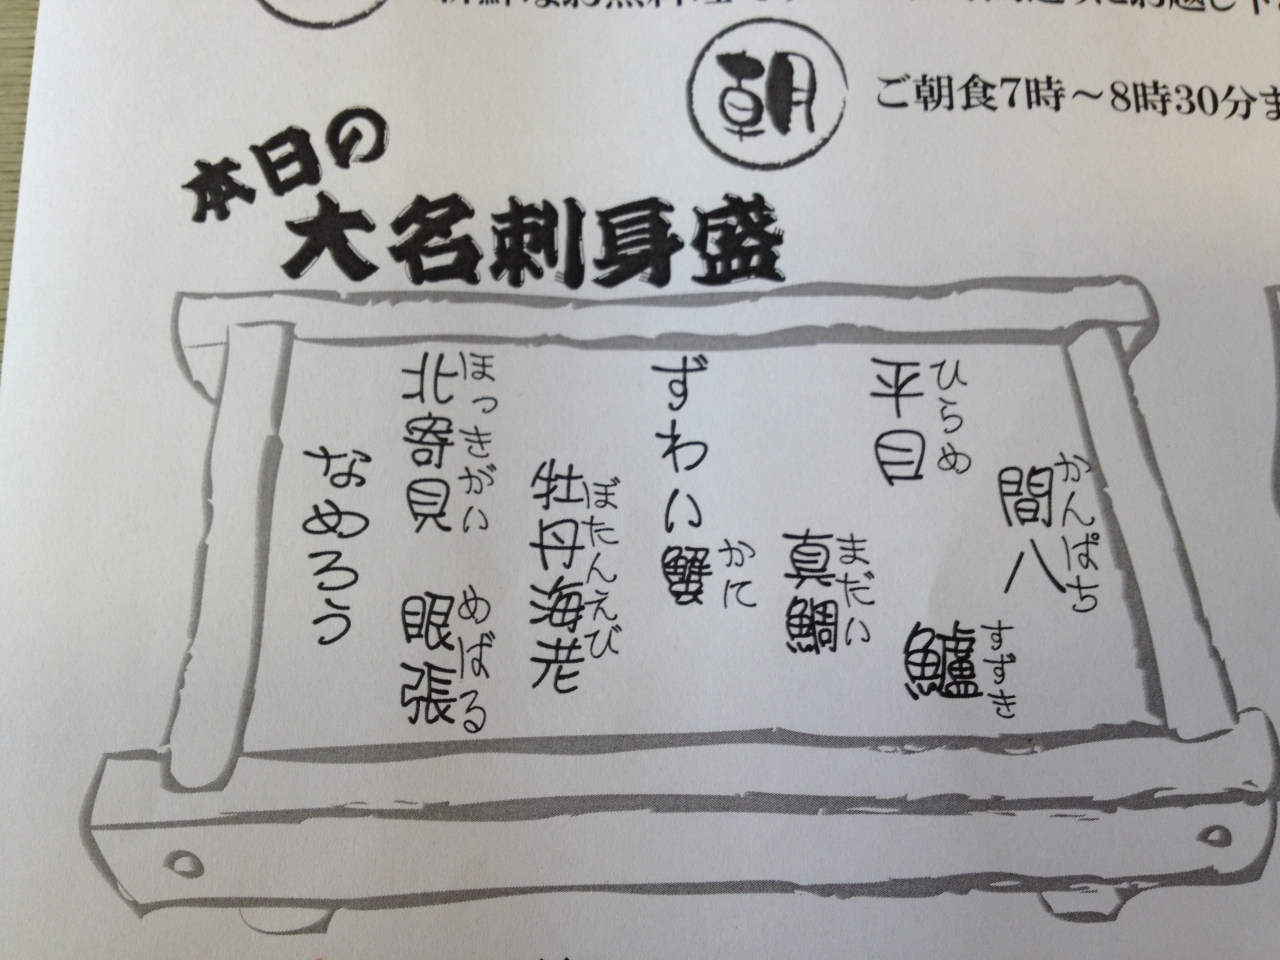 朝
ご朝食7時～8時30分ま
本日の
大名刺身盛
間八
かんぱち
鱸
すずき
平目
ひらめ
真鯛
まだい
ずわい蟹
かに
牡丹海老
ぼたんえび
北寄貝
ほっきがい
眼張
めばる
なめろう